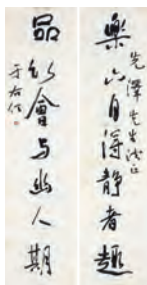 樂山自得静者趣
先澤先生法正
品幽會与幽人期
于右任